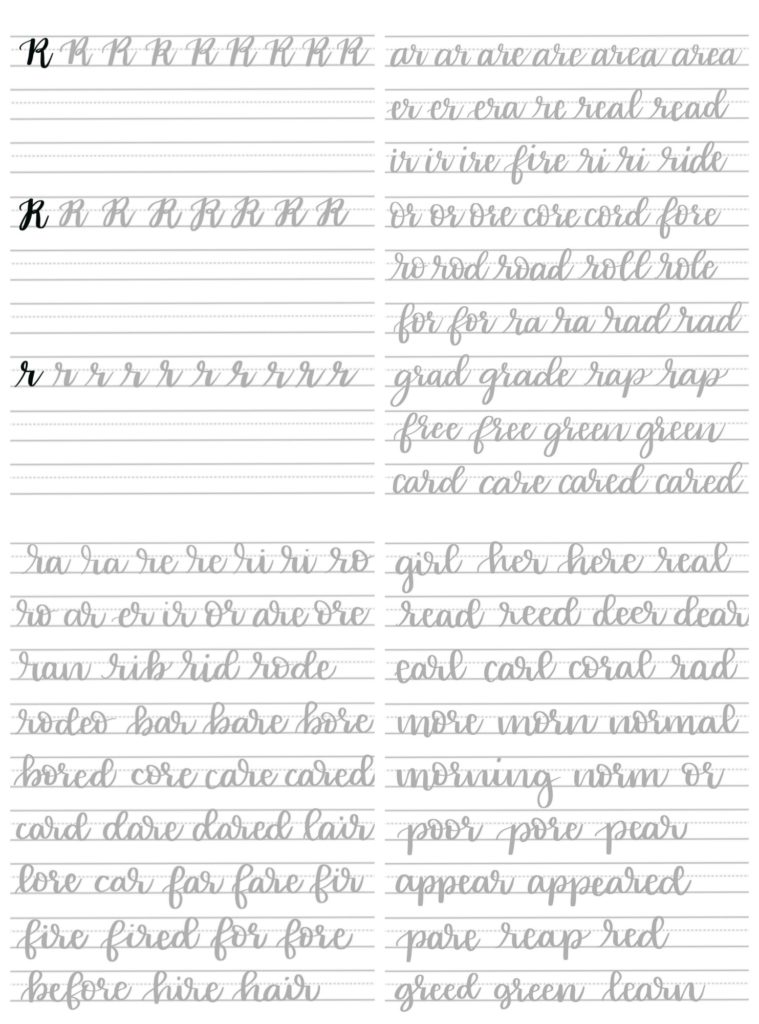 R R R R R R R R R
R R R R R R R R
r r r r r r r r r r
ar ar are are area area
er er era re real read
ir ir ire fire ri ri ride
or or ore core cord fore
ro rod road roll role
for for ra ra rad rad
grad grade rap rap
free free green green
card care cared cared
ra ra re re ri ri ro
ro ar er ir or are ore
ran rib rid rode
rodeo bar bare bore
bored core care cared
card dare dared lair
lore car far fare fir
fire fired for fore
before hire hair
girl her here real
read reed deer dear
earl carl coral rad
more morn normal
morning norm or
poor pore pear
appear appeared
pare reap red
greed green learn